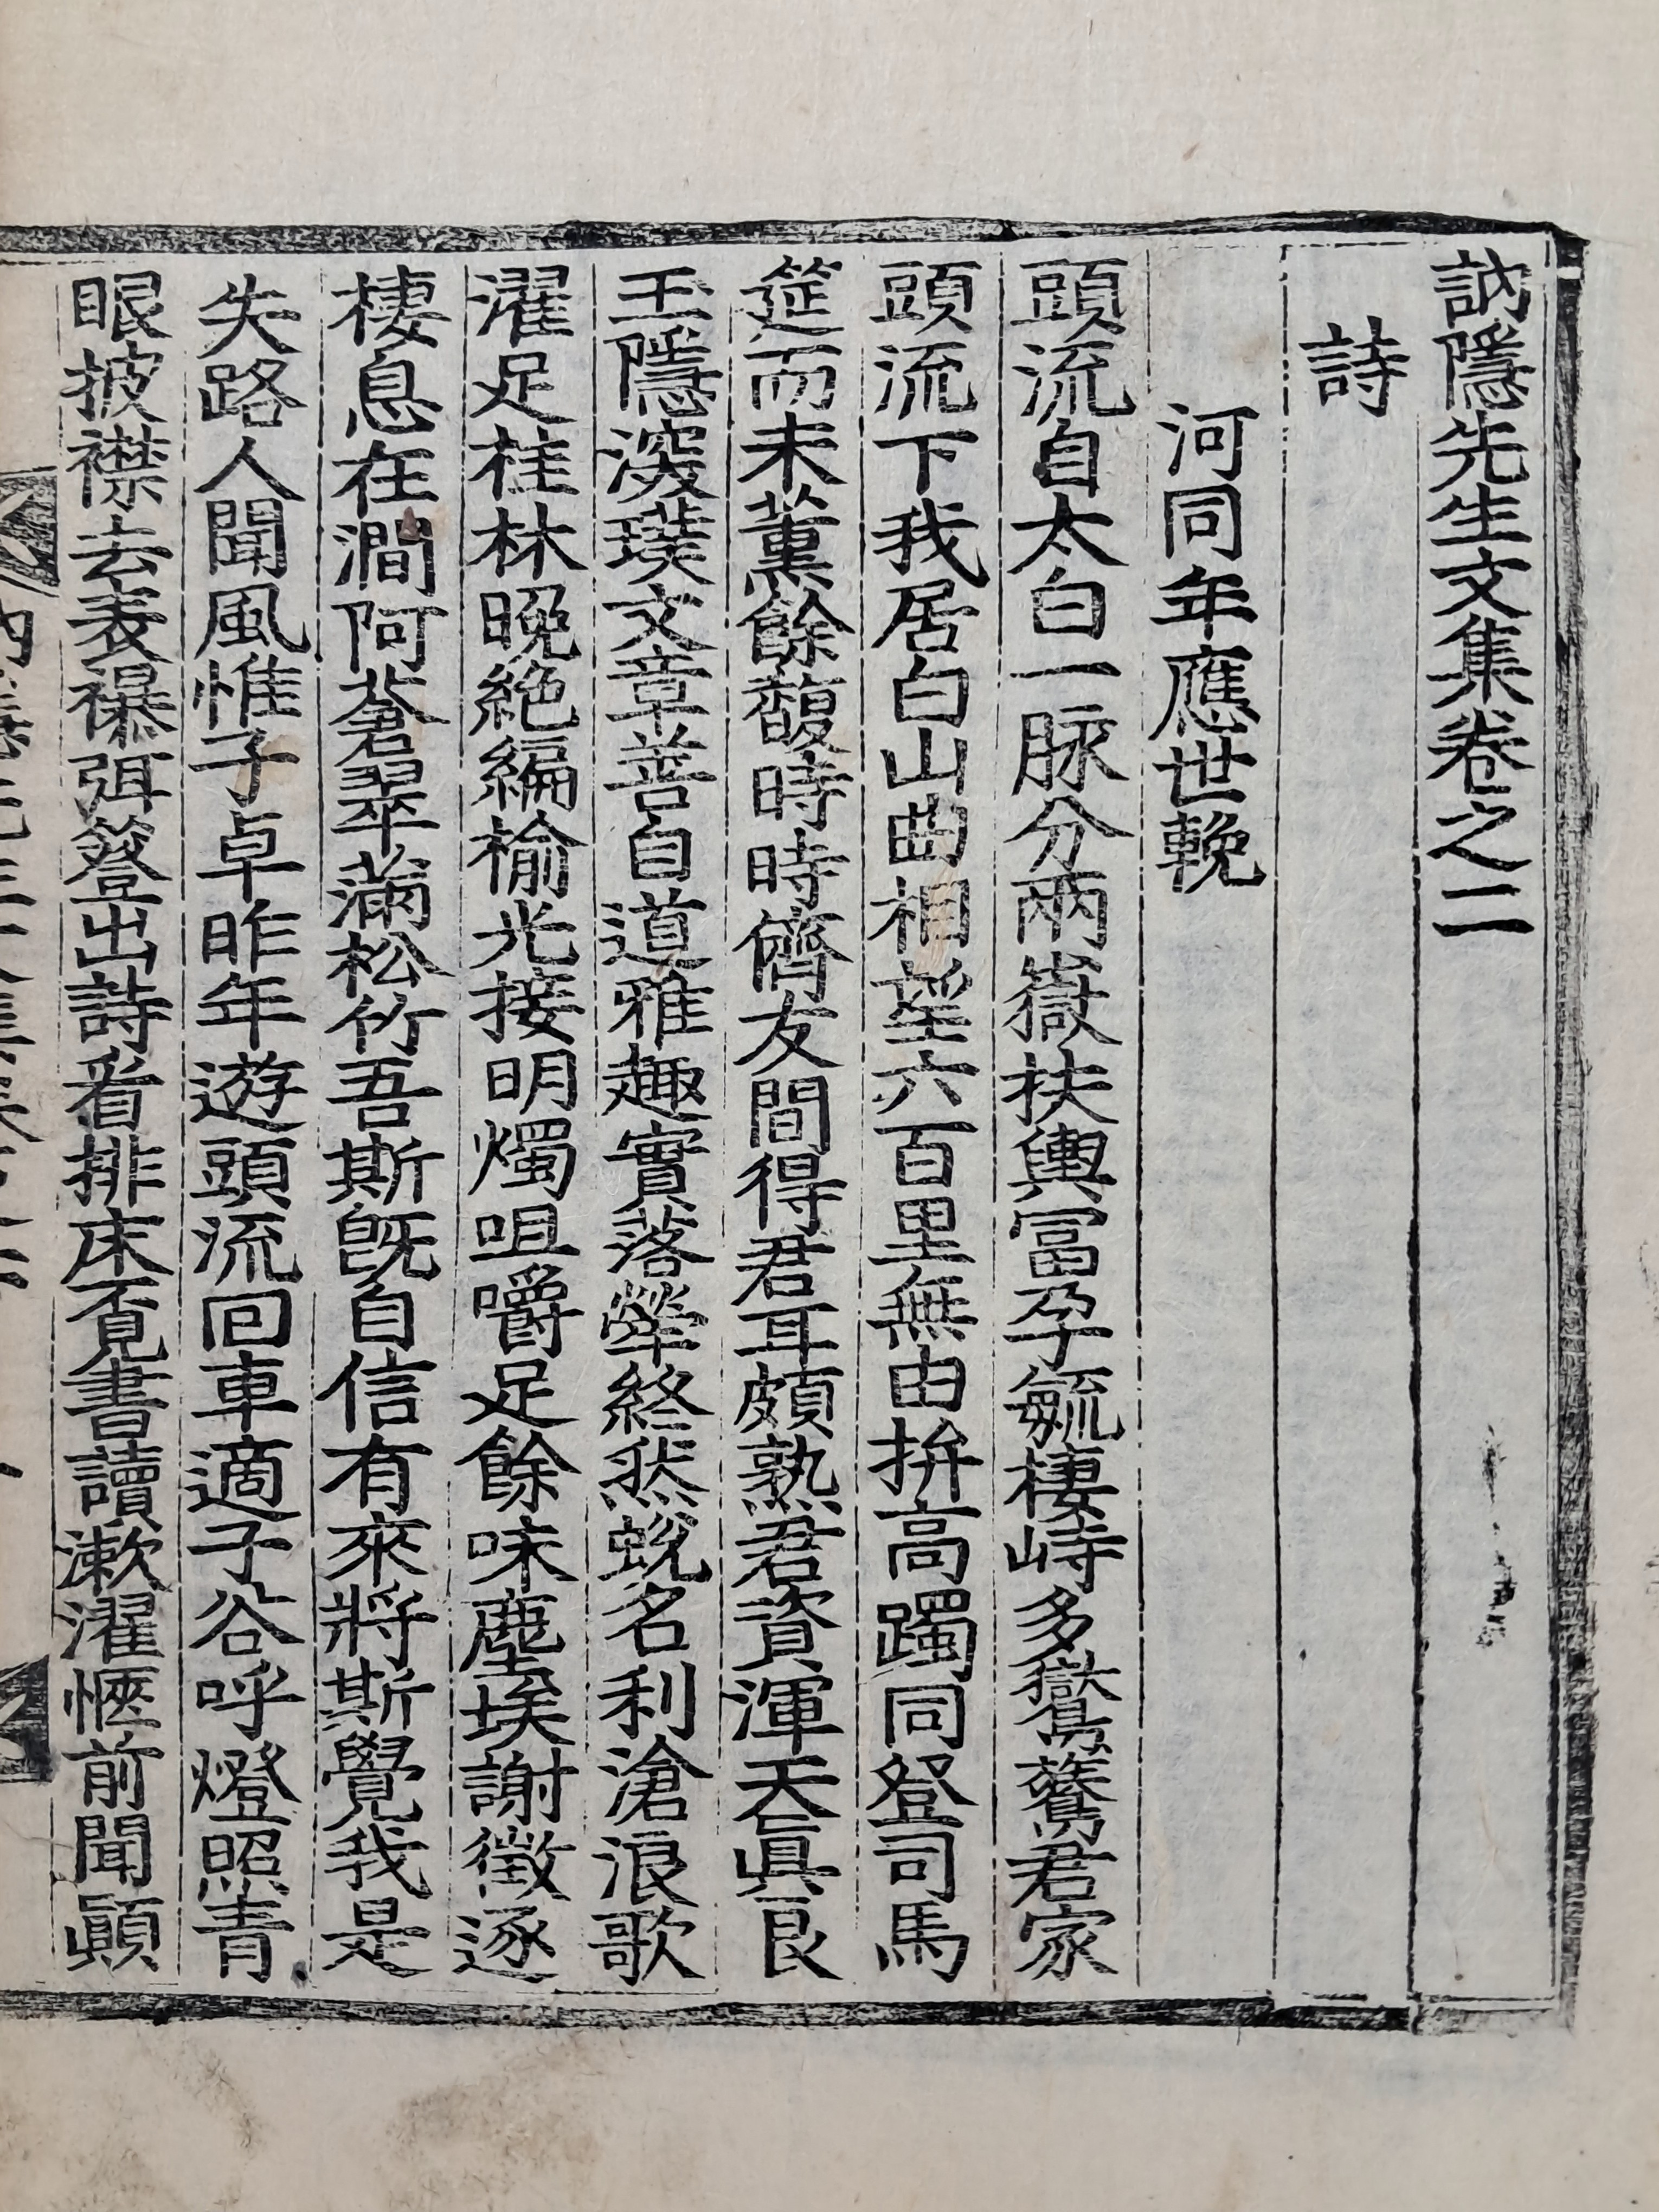 訥隱先生文集卷之二
詩
河同年應世輓
頭流自太白一脉分兩嶽扶輿富孕毓棲峙多鸑鷟君家
頭流下我居白山曲相望六百里無由拚高躅同登司馬
筵而未薰餘馥時時儕友間得君耳頗熟君資渾天眞良
玉隱深璞文章善自道雅趣實落犖終然蛻名利滄浪歌
濯足桂林晩絶編榆光接明燭咀嚼足餘味塵埃謝徵逐
棲息在澗阿蒼翠滿松竹吾斯旣自信有來將斯覺我是
失路人聞風惟子卓昨年遊頭流回車適子谷呼燈照青
眼披襟去表襮弭簦出詩看排床覔書讀漱濯愜前聞顚